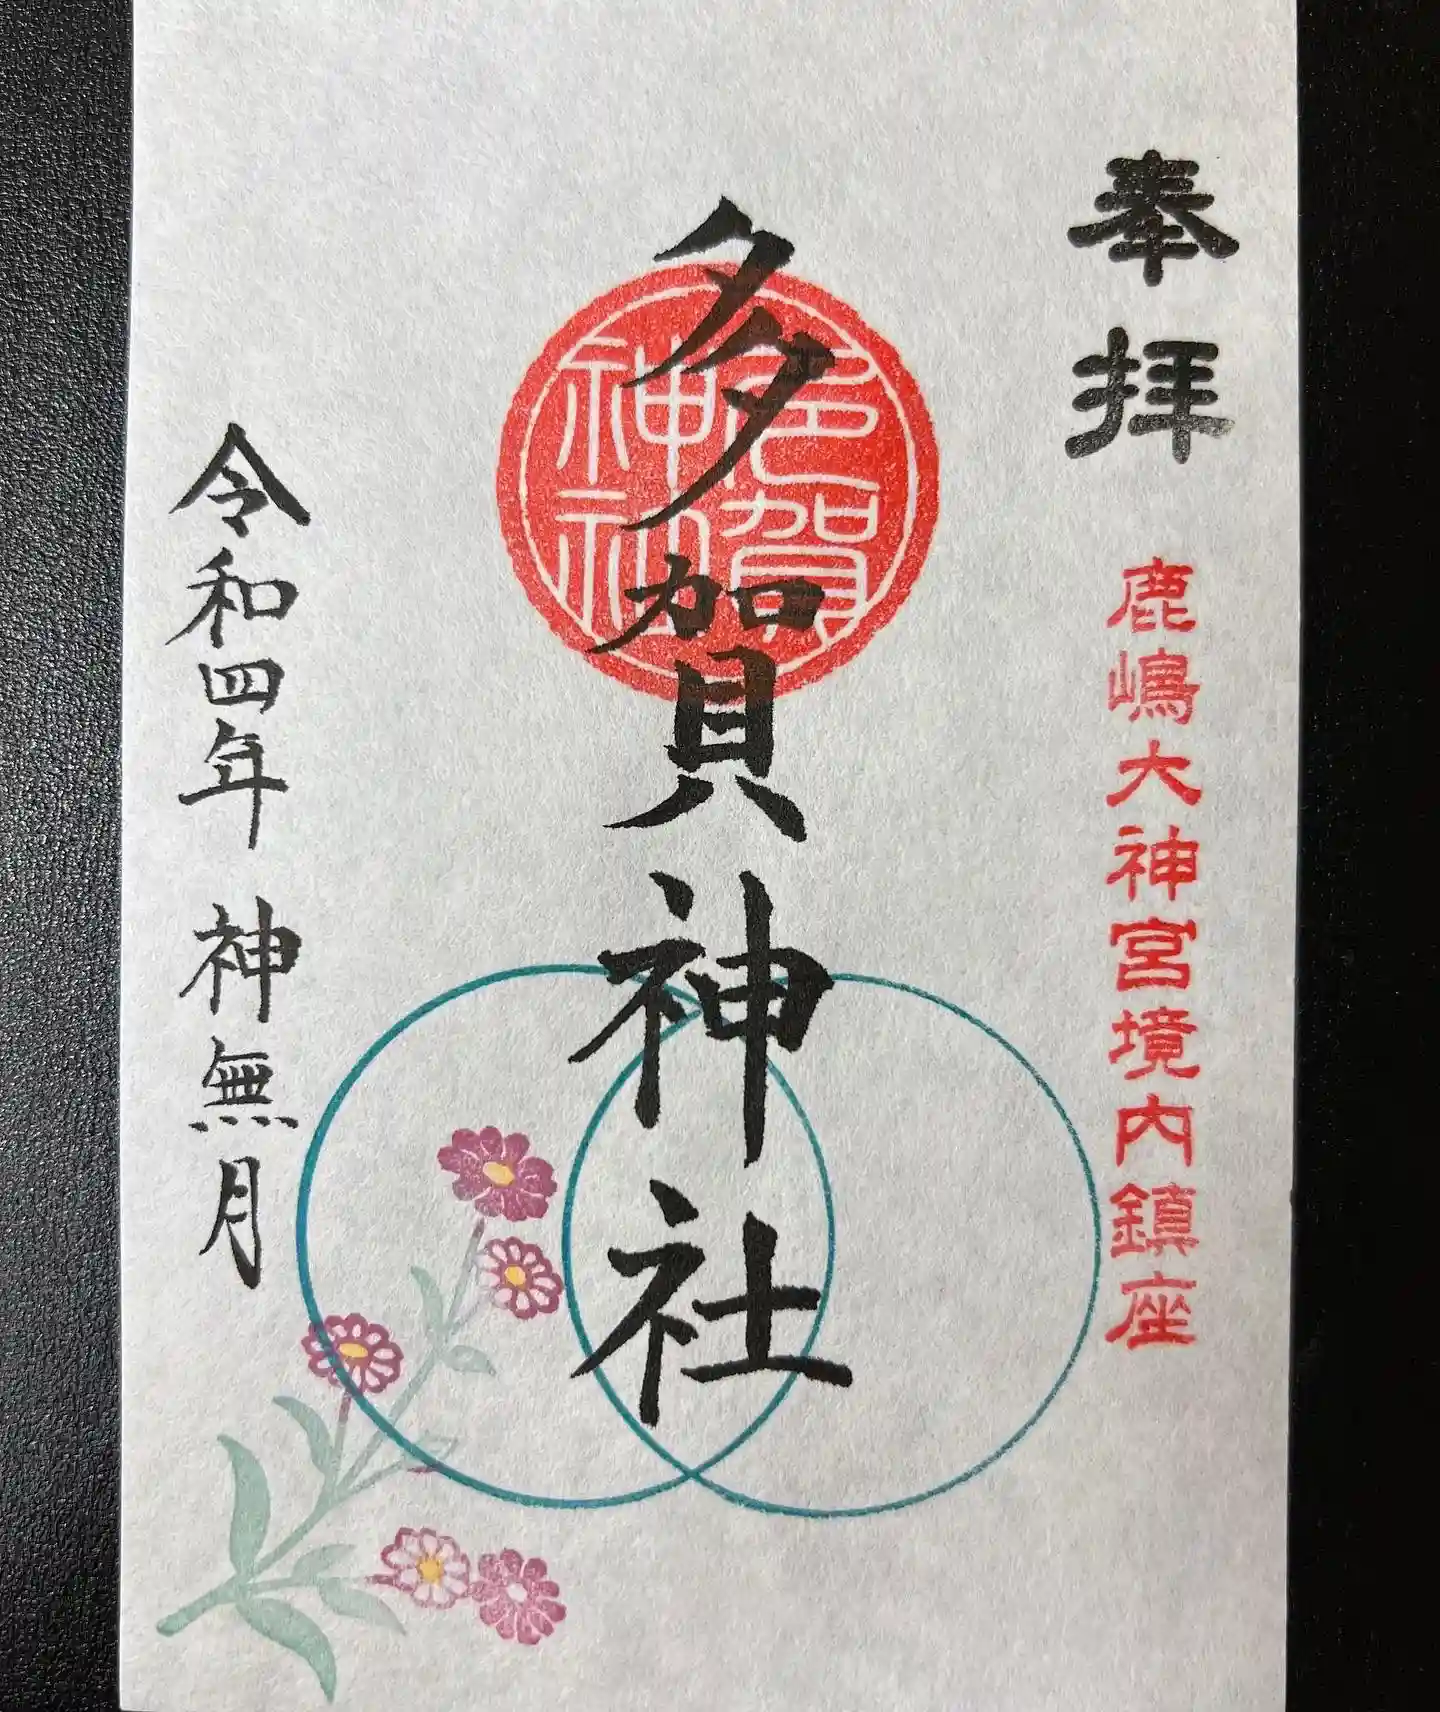 奉拝
鹿嶋大神宮境内鎮座
多賀神社
多賀
神社
令和四年 神無月